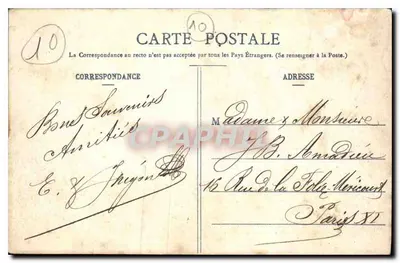 10
10
CARTE POSTALE
La Correspondance au recto n'est pas acceptée par tous les Pays Étrangers. (Se renseigner à la Poste.)
CORRESPONDANCE
Bons Souvenirs
Amitiés
E. &
CPARAMA
ADRESSE
Madame & Monsieur
J.B. Amadieu
15 Rue de la Folie Méricourt
Paris XI